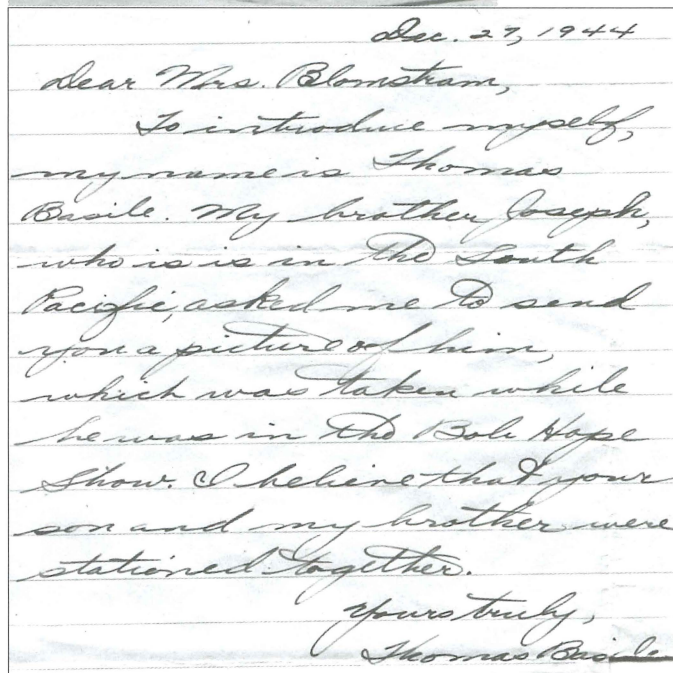 Dec. 27, 1944
Dear Mrs. Blomstram,
To introduce myself,
my name is Thomas
Basile. My brother Joseph,
who is is in the South
Pacific, asked me to send
you a picture of him,
which was taken while
he was in the Bob Hope
Show. I believe that your
son and my brother were
stationed together.
Yours truly,
Thomas Basile